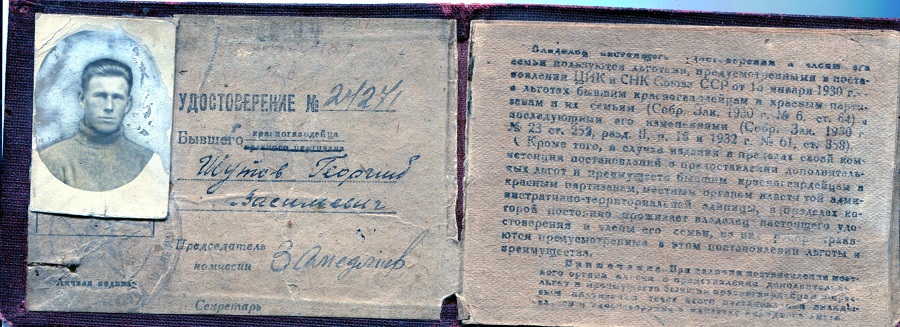 УДОСТОВЕРЕНИЕ № 24241
Бывшего красногвардейца
красного партизана
Шутов Георгий
Васильевич
Председатель
комиссии
Личная подпись
Секретарь
Владелец настоящего удостоверения и члены его
семьи пользуются льготами, предусмотренными в поста-
новлении ЦИК и СНК Союза ССР от 13 января 1930 г.
о льготах бывшим красногвардейцам и красным парти-
занам и их семьям (Собр. Зак. 1930 г. № 6, ст. 64) и
последующими его изменениями (Собр. Зак. 1930 г.
№ 23 ст. 252, разд. II, п. 13 и 1932 г. № 61, ст. 359).
Кроме того, в случае издания в пределах своей ком-
петенции постановлений о предоставлении дополнитель-
ных льгот и преимуществ бывшим красногвардейцам и
красным партизанам, местным органом власти той адми-
нистративно-территориальной единицы, в пределах ко-
торой постоянно проживает владелец настоящего удо-
стоверения и члены его семьи, на них распространя-
ются предусмотренные в этом постановлении льготы и
преимущества.
Примечание. При наличии постановления мест-
ного органа власти о предоставлении дополнительных
льгот и преимуществ бывшим красногвардейцам и крас-
ным партизанам текст этого постановления